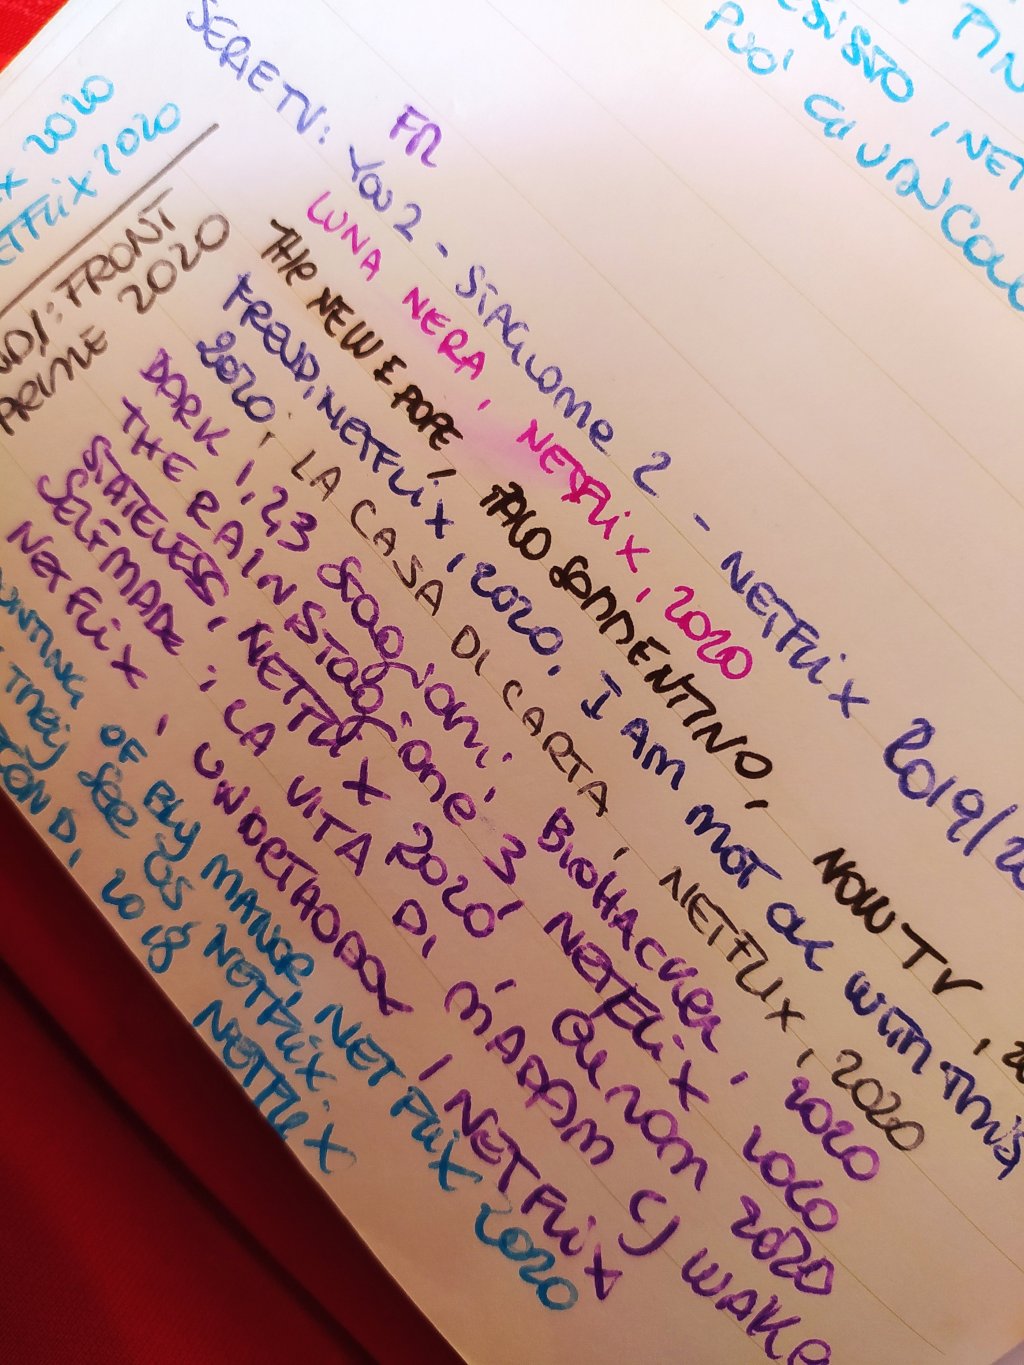 FR
SERIE TV: YOU 2 - STAGIONE 2 - NETFLIX 2019/20
LUNA NERA, NETFLIX, 2020
THE NEW POPE, SORRENTINO, NOW TV, 2
FREUD, NETFLIX, 2020, I AM NOT OK WITH THIS
2020, LA CASA DI CARTA, NETFLIX, 2020
DARK 1,2,3 STAGIONI, BIOHACKER, 2020
THE RAIN STAGIONE 3 NETFLIX 2020
STATELESS, NETFLIX 2020, 2020
SELF MADE: LA VITA DI MADAM CJ WALKE
NETFLIX, UNORTHODOX, NETFLIX
UNTING OF BLY MANOR, NETFLIX 2020
THEY SEE US, NETFLIX.
CONDI, 2018 NETFLIX
X 2020
ETFLIX 2020
: FRONT
PRIME 2020
TIN
ESISTO, NET
PUÒ